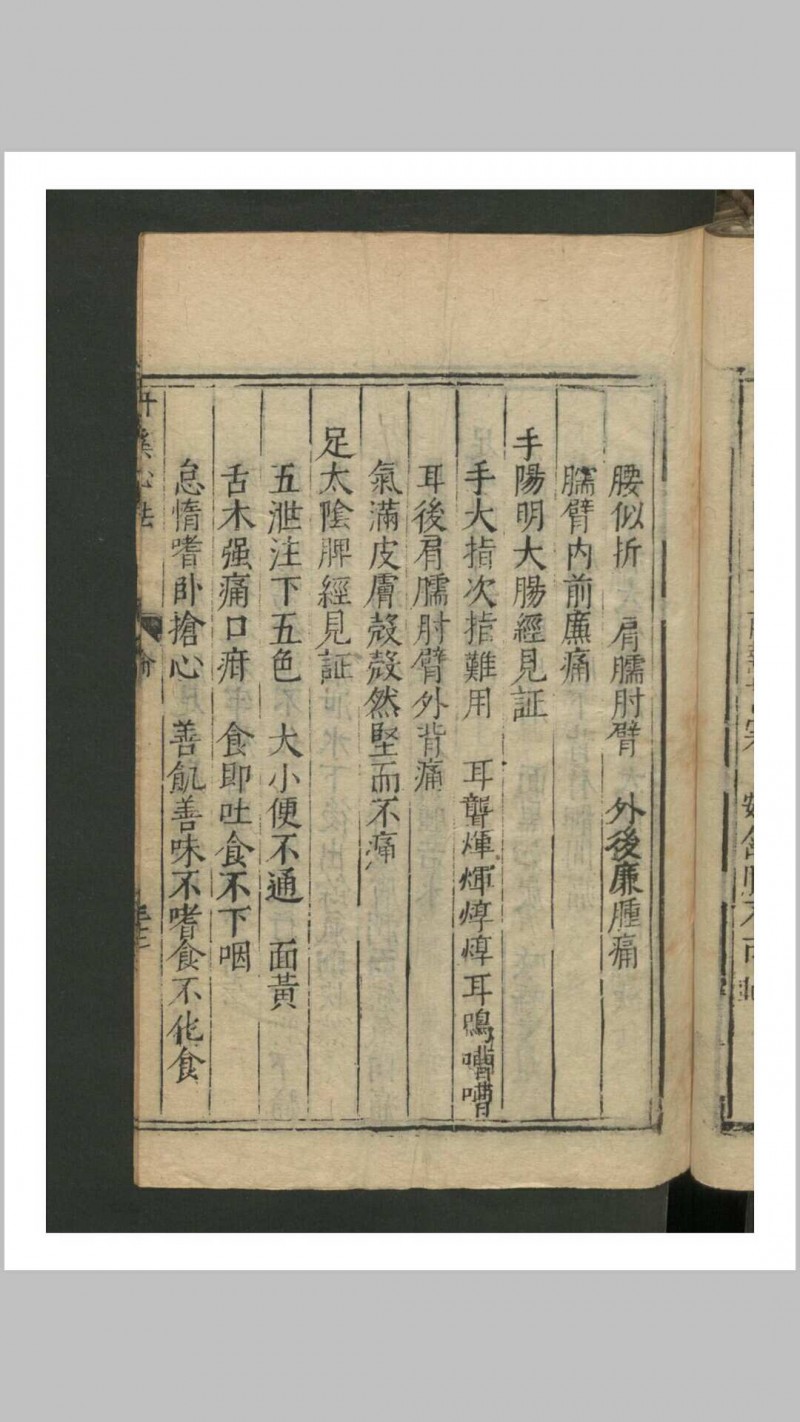 腰似折　肩臑肘臂　外後廉腫痛
臑臂内前廉痛
手陽明大腸經見証
手大指次指難用　耳聾煇煇焞焞耳鳴嘈嘈
耳後肩臑肘臂外背痛
氣滿皮膚殼殼然堅而不痛
足太陰脾經見証
五泄注下五色　大小便不通　面黃
舌木强痛口疳　食即吐食不下咽
怠惰嗜卧搶心　善飢善味不嗜食不化食
丹溪心法　論